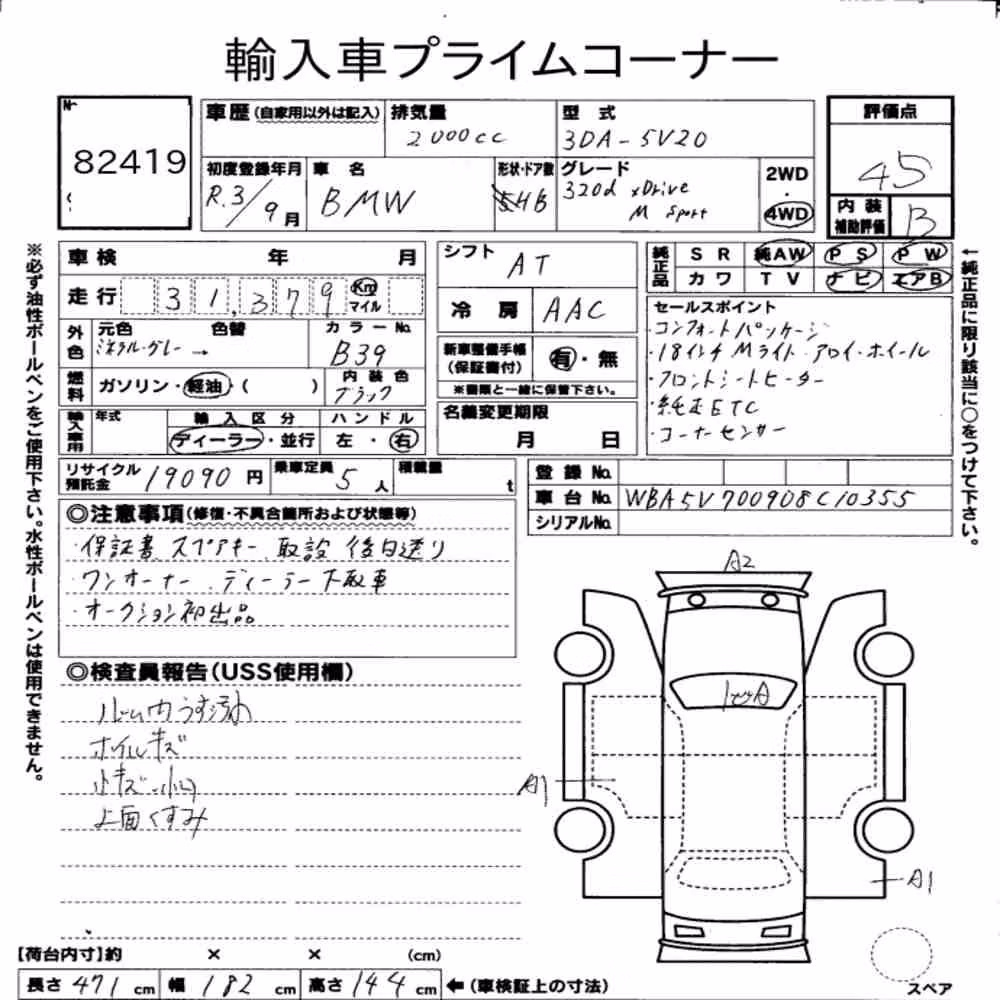 輸入車プライムコーナー
№
82419
車歴(自家用以外は記入)
排気量
2000cc
型式
3DA-5V20
評価点
45
初度登録年月
R.3/9月
車名
BMW
形状・ドア数
4B
グレード
320d xDrive
M Sport
2WD
・
4WD
内装
補助評価
B
車検 年 月
走行 31,379 Km
マイル
外色
元色 色替 カラーNo.
ミネラル・グレー → B39
燃料
ガソリン・軽油・( )
内装色
ブラック
輸入車用
年式 輸入区分 ハンドル
ディーラー・並行 左・右
リサイクル
預託金
19090円
乗車定員
5人
積載量
t
シフト
AT
冷房 AAC
新車整備手帳
(保証書付)
有・無
※書類と一緒に保管下さい。
名義変更期限
月 日
純正品
SR 純AW PS PW
カワ TV ナビ エアB
セールスポイント
・コンフォートパッケージ
・18インチMライト・アロイ・ホイール
・フロントシートヒーター
・純正ETC
・コーナーセンサー
登録No.
車台No. WBA5V700908C10355
シリアルNo.
※必ず油性ボールペンをご使用下さい。水性ボールペンは使用できません。
←純正品に限り該当に○をつけて下さい。
◎注意事項(修復・不具合箇所および状態等)
・保証書 スペアキー 取説 後日送り
・ワンオーナー、ディーラー下取車
・オークション初出品
◎検査員報告(USS使用欄)
ルーム内うす汚れ
ホイルキズ
小キズ・小凹
上面くすみ
A2
A1
A1
【荷台内寸】約 × × (cm)
長さ 471 cm 幅 182 cm 高さ 144 cm ←(車検証上の寸法)
スペア